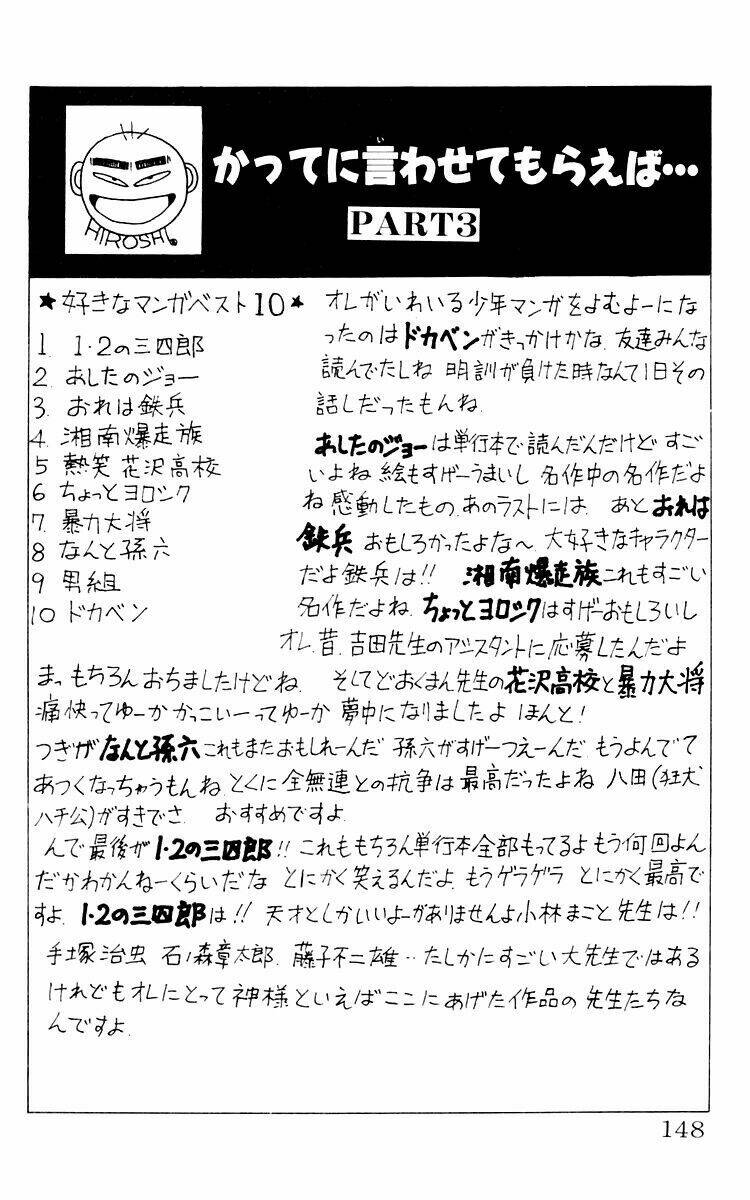 かってに言わせてもらえば…
い
PART3
HIROSHI.
★好きなマンガベスト10★
1 1・2の三四郎
2 あしたのジョー
3 おれは鉄兵
4 湘南爆走族
5 熱笑 花沢高校
6 ちょっとヨロシク
7 暴力大将
8 なんと孫六
9 男組
10 ドカベン
オレがいわいる少年マンガをよむよーにな
ったのはドカベンがきっかけかな。友達みんな
読んでたしね 明訓が負けた時なんて1日その
話しだったもんね.
あしたのジョーは単行本で読んだんだけど すご
いよね 絵もすげーうまいし 名作中の名作だよ
ね 感動したもの、あのラストには。 あと おれは
鉄兵 おもしろかったよな〜 大好きなキャラクター
だよ鉄兵は!! 湘南爆走族これもすごい
名作だよね。ちょっとヨロシクはすげーおもしろいし
オレ、昔、吉田先生のアシスタントに応募したんだよ
まっもちろんおちましたけどね。 そしてどおくまん先生の花沢高校と暴力大将
痛快ってゆーか かっこいーってゆーか 夢中になりましたよ ほんと!
つぎがなんと孫六これもまたおもしれーんだ 孫六がすげーつえーんだ もうよんでて
あつくなっちゃうもんね とくに全無連との抗争は最高だったよね 八田(狂犬
ハチ公)がすきでさ。 おすすめですよ.
んで最後が1・2の三四郎!! これももちろん単行本全部もってるよ もう何回よん
だかわかんねーくらいだな とにかく笑えるんだよ。もうゲラゲラ とにかく最高で
すよ。1・2の三四郎は!! 天才としかいいよーがありませんよ小林まこと先生は!!
手塚治虫 石ノ森章太郎. 藤子不二雄…たしかにすごい大先生ではある
けれどもオレにとって神様といえばここにあげた作品の先生たちな
んですよ.
148